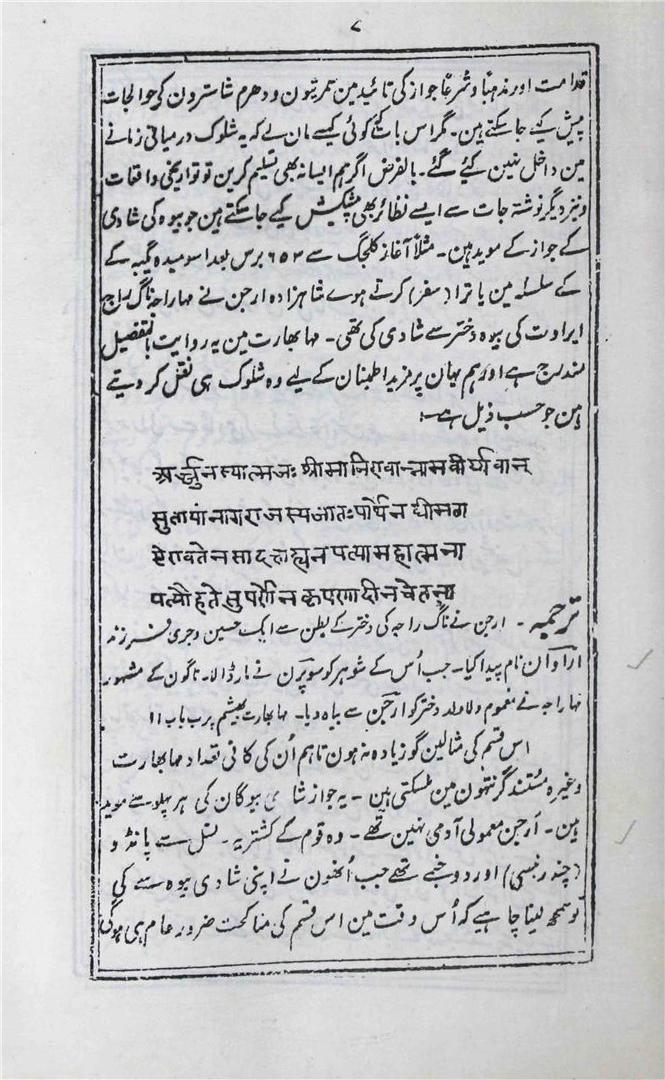 ۷
قدامت اور مذہباً و شرعاً جواز کی تائید مین سمرتیون و دھرم شاسترون کی حوالجات
پیش کیے جا سکتے ہین۔ مگر اس بات کئے کوئی کیسے مان لے کہ یہ شلوک درمیانی زمانے
مین داخل نہین کیئے گئے۔ بالفرض اگر ہم ایسا نہ بھی تسلیم کرین تو تواریخی واقعات
و نیز دیگر نوشتہ جات سے ایسے نظائر بھی پیشکیش کیے جا سکتے ہین جو بیوہ کی شادی
کے جواز کے موید ہین۔ مثلاً آغاز کلجگ سے ۶۵۳ برس بعد اسومیدہ یگیہ کے
کے سلسلہ مین یاترا (سفر) کرتے ہوے شاہزادہ ارجن نے مہاراجہ ناگ راج
ایراوت کی بیوہ دختر سے شادی کی تھی۔ مہابھارت مین یہ روایت بالتفصیل
مندرج ہے اور ہم یہان پر مزید اطمنان کے لیے وہ شلوک ہی نقل کر دیتے
ہین جو حسب ذیل ہے۔:
अर्ज्जुनस्यात्मजः श्रीमानिरावान्नामवीर्य्यवान्
सुतायांनागराजस्यजातःपार्थेनधीमता
ऐरावतेनसादत्ताह्यनपत्यामहात्मना
पत्यौहतेसुपर्णेनकृपणादीनचेतना
ترجمہ۔ ارجن نے ناگ راجہ کی دختر کے بطن سے ایک حسین و جری فرزند
اراوان نام پیدا کیا۔ جب اُس کے شوہر کو سوپرن نے مار ڈالا۔ ناگون کے مشہور
مہاراجہ نے مغموم و لاولد دختر کو ارجن سے بیاہ دیا۔ مہابھارت بھیشم پرب باب ۹۱
اس قسم کی مثالین گو زیادہ نہ ہون تاہم اُن کی کافی تعداد مہابھارت
وغیرہ مستند گرنتھون مین ملسکتی ہین۔ یہ جواز شادی بیوگان کی ہر پہلو سے موید
ہین۔ ارجن معمولی آدمی نہین تھے۔ وہ قوم کے کشتریہ۔ نسل سے پانڈو
(چندر بنسی) اور دوجنمے تھے جب اُنھون نے اپنی شادی بیوہ سے کی
تو سمجھ لینا چاہیے کہ اُس وقت مین اس قسم کی مناکحت ضرور عام ہی ہوگی